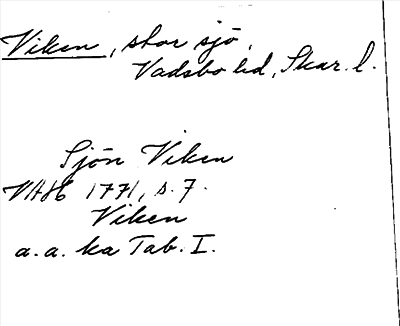 Viken, stor sjö,
Vadsbo hd, Skar. l.
Sjön Viken
VAH 1771, s. 7.
Viken
a.a. ka Tab. I.